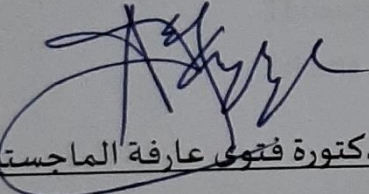 كتورة فتوى عارفة الماجست